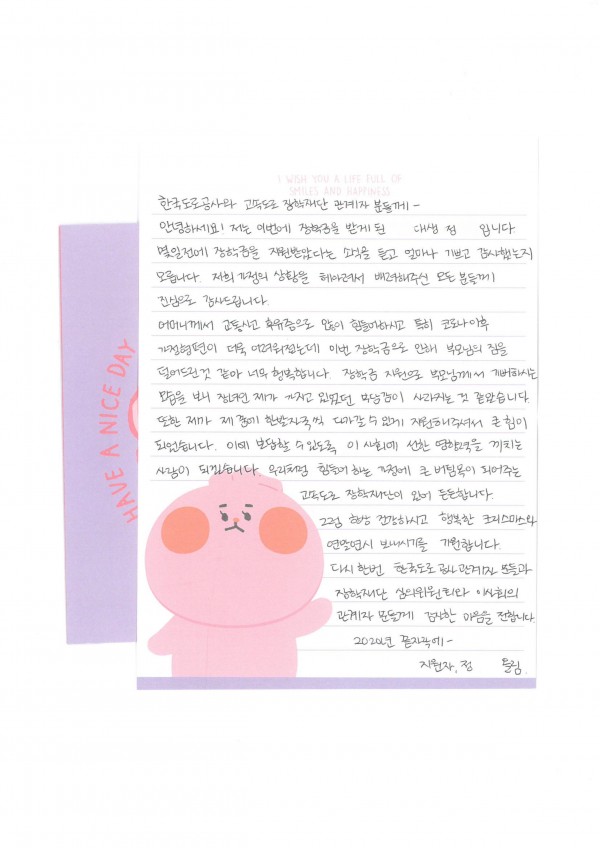 I WISH YOU A LIFE FULL OF
SMILES AND HAPPINESS
한국도로공사와 고속도로 장학재단 관계자 분들께-
안녕하세요! 저는 이번에 장학금을 받게 된 대생 정 입니다
몇일전에 장학금을 지원받았다는 소식을 듣고 얼마나 기쁘고 감사했는지
모릅니다. 저희 가정의 상황을 헤아려서 배려해주신 모든 분들께
진심으로 감사드립니다.
어머니께서 교통사고 후유증으로 많이 힘들어하시고 특히 코로나 이후
가정형편이 더욱 어려워졌는데 이번 장학금으로 인해 부모님의 짐을
덜어드린 것 같아 너무 행복합니다. 장학금 지원으로 부모님께서 기뻐하시는
모습을 보니 장녀인 제가 가지고 있었던 부담감이 사라지는 것 같았습니다.
또한 제가 제 꿈에 한발자국씩 다가갈 수 있게 지원해주셔서 큰 힘이
되었습니다. 이에 보답할 수 있도록 이 사회에 선한 영향력을 끼치는
사람이 되겠습니다. 우리처럼 힘들어 하는 가정에 큰 버팀목이 되어주는
고속도로 장학재단이 있어 든든합니다.
그럼 항상 건강하시고 행복한 크리스마스와
연말연시 보내시기를 기원합니다.
다시 한번 한국도로공사 관계자 분들과
장학재단 심의위원회와 이사회의
관계자 분들께 감사한 마음을 전합니다.
2020년 끝자락에-
지원자, 정 올림.
HAVE A NICE DAY